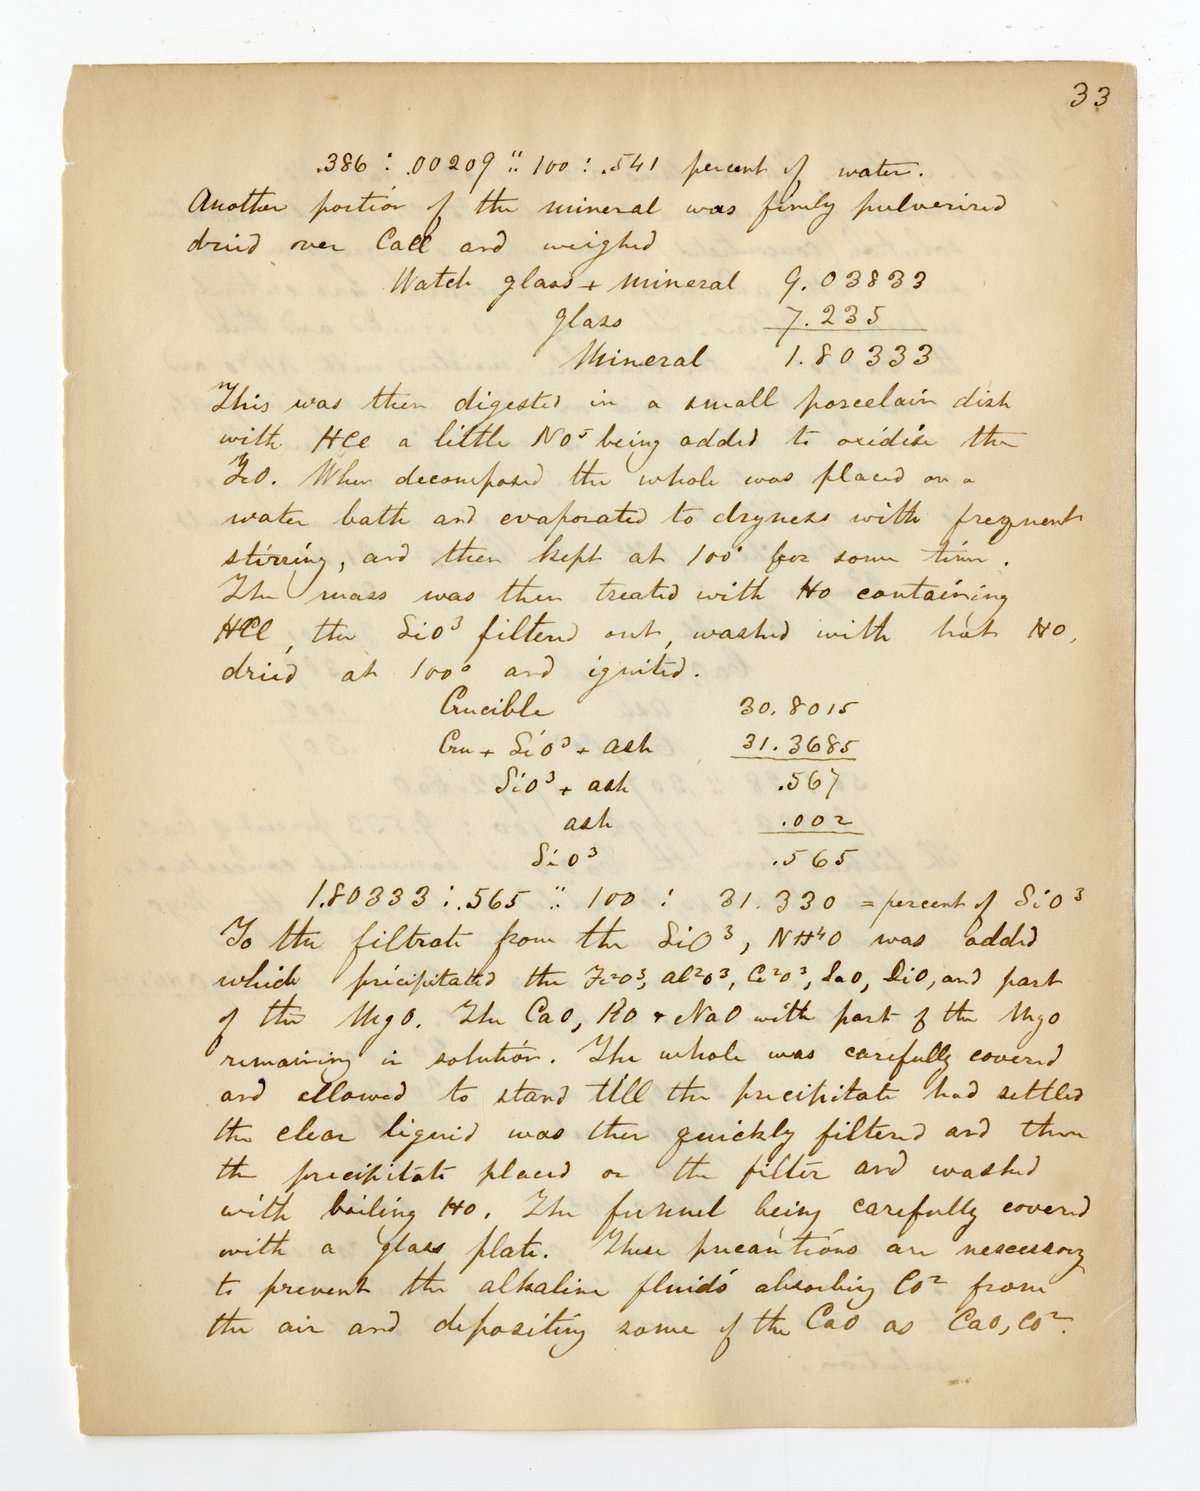 33
.386 : .00209 :: 100 : .541 percent of water.
Another portion of the mineral was finely pulverised
dried over CaCl and weighed
Watch glass + mineral 9.03833
glass 7.235
Mineral 1.80333
This was then digested in a small porcelain dish
with HCl a little NO⁵ being added to oxidise the
FeO. When decomposed the whole was placed on a
water bath and evaporated to dryness with frequent
stirring, and then kept at 100° for some time.
The mass was then treated with HO containing
HCl, the SiO³ filtered out, washed with hot HO,
dried at 100° and ignited.
Crucible 30.8015
Cru + SiO³ + ash 31.3685
SiO³ + ash .567
ash .002
SiO³ .565
1.80333 : .565 :: 100 : 31.330 = percent of SiO³
To the filtrate from the SiO³, NH⁴O was added
which precipitated the Fe²O³, Al²O³, Ce²O³, LaO, DiO, and part
of the MgO. The CaO, KO + NaO with part of the MgO
remaining in solution. The whole was carefully covered
and allowed to stand till the precipitate had settled
the clear liquid was then quickly filtered and then
the precipitate placed on the filter and washed
with boiling HO. The funnel being carefully covered
with a glass plate. These precautions are nescessary
to prevent the alkaline fluids absorbing CO² from
the air and depositing some of the CaO as CaO, CO².